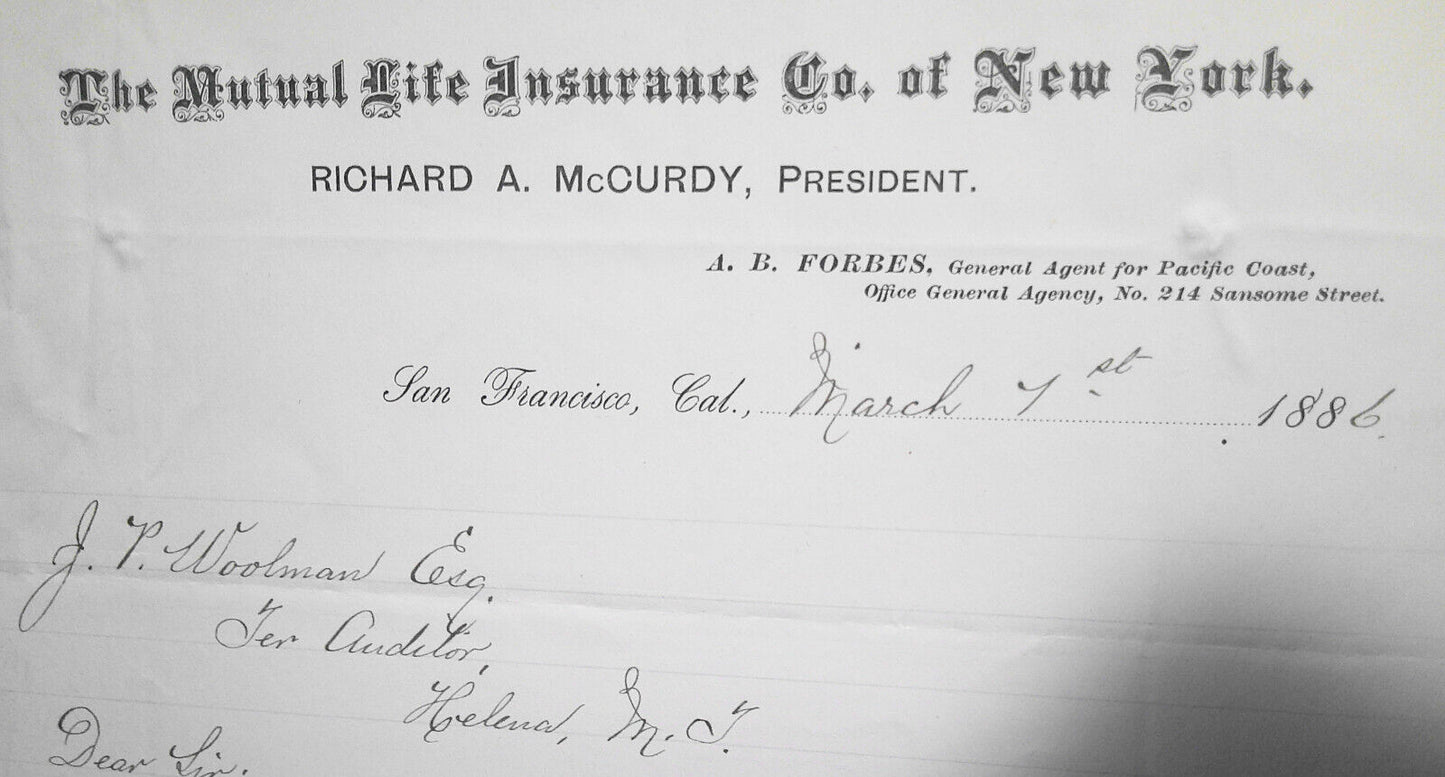 The Mutual Life Insurance Co. of New York.
RICHARD A. McCURDY, PRESIDENT.
A. B. FORBES, General Agent for Pacific Coast,
Office General Agency, No. 214 Sansome Street.
San Francisco, Cal., March 1st 1886.
J. P. Woolman Esq.
Ter Auditor,
Helena, M. T.
Dear Sir.